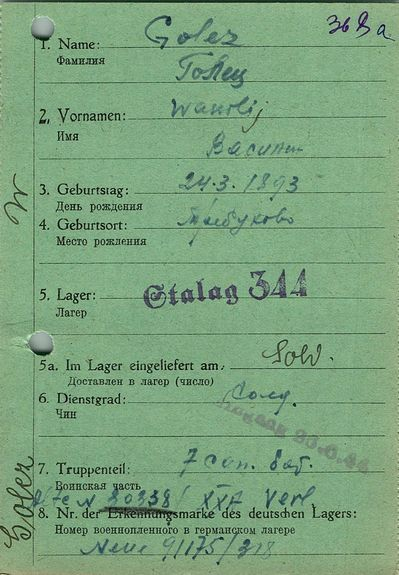 36 9a
1. Name: Golez
Фамилия Голец
2. Vornamen: Wassilij
Имя Василий
3. Geburtstag: 24.3.1893
День рождения
4. Geburtsort: Трибухово
Место рождения
5. Lager: Stalag 344
Лагер
5a. Im Lager eingeliefert am Sold.
Доставлен в лагер (число)
6. Dienstgrad: Солд.
Чин
7. Truppenteil: 7 сап. бат.
Воинская часть
N 30338 XXA Verl.
8. Nr. der Erkennungsmarke des deutschen Lagers:
Номер военнопленного в германском лагере
Neue 91175/318
Golez